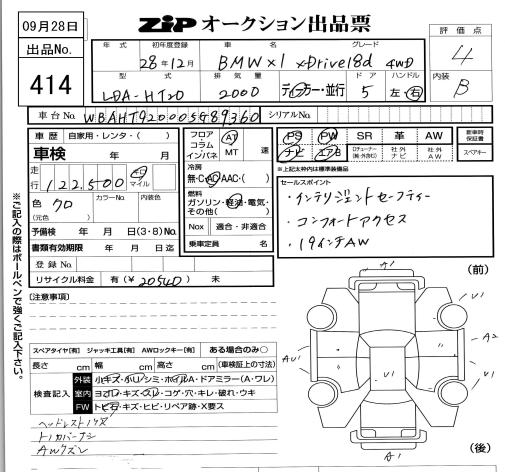 09月28日
出品No.
414
ZIP オークション出品票
評価点
4
内装
B
年式 初年度登録 車名 グレード
28年12月 BMW X1 xDrive18d 4WD
型式 排気量 ドア ハンドル
LDA-HT20 2000 ディーラー・並行 5 左・右
車台No. WBAHT920005G89360 シリアルNo.
車歴 自家用・レンタ( )
車検 年 月
走行 122,500 km マイル
色 クロ カラーNo. 内装色
(元色 )
予備検 年 月 日(3・8)No.
書類有効期限 年 月 日迄
登録No.
リサイクル料金 有(¥20540) 未
フロア コラム インパネ AT MT 速
冷房
無・C・AC・AAC・( )
燃料
ガソリン・軽油・電気・その他( )
Nox 適合・非適合
乗車定員 名
PS PW SR 革 AW 新車時保証書
ナビ エアB 社外ナビ 社外AW スペアキー
※上記太枠内は標準装備品
セールスポイント
・インテリジェントセーフティー
・コンフォートアクセス
・19インチAW
※ご記入の際はボールペンで強くご記入下さい。
[注意事項]
スペアタイヤ[有] ジャッキ工具[有] AWロックキー[有] ある場合のみ○
長さ cm 幅 cm 高さ cm (車検証上の寸法)
検査記入
外装 小キズ・小U・シミ・ホイルA・ドアミラー(A・ワレ)
室内 ヨゴレ・キズ・スレ・コゲ・穴・キレ・破れ・ウキ
FW トビ石・キズ・ヒビ・リペア跡・X要す
トノカバーナシ
AWクスレ
(前)
A1
U1
A2
AU1
U1
U1
A1
(後)